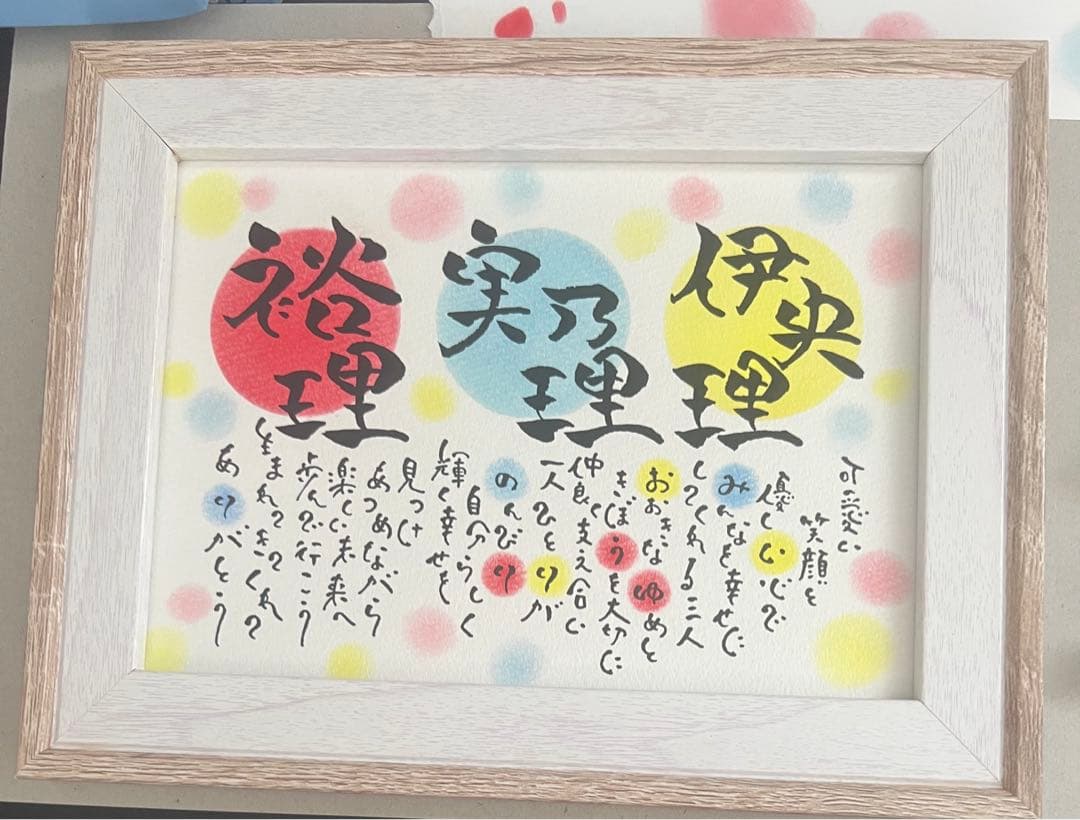 伊央理
実乃理
裕理
可愛い
笑顔と
優しい心で
みんなを幸せに
してくれる三人
おおきなゆめと
きぼうを大切に
仲良く支え合い
一人ひとりが
のんびり
自分らしく
輝く幸せを
見つけ
あつめながら
楽しい未来へ
歩んで行こう
生まれてきてくれて
ありがとう